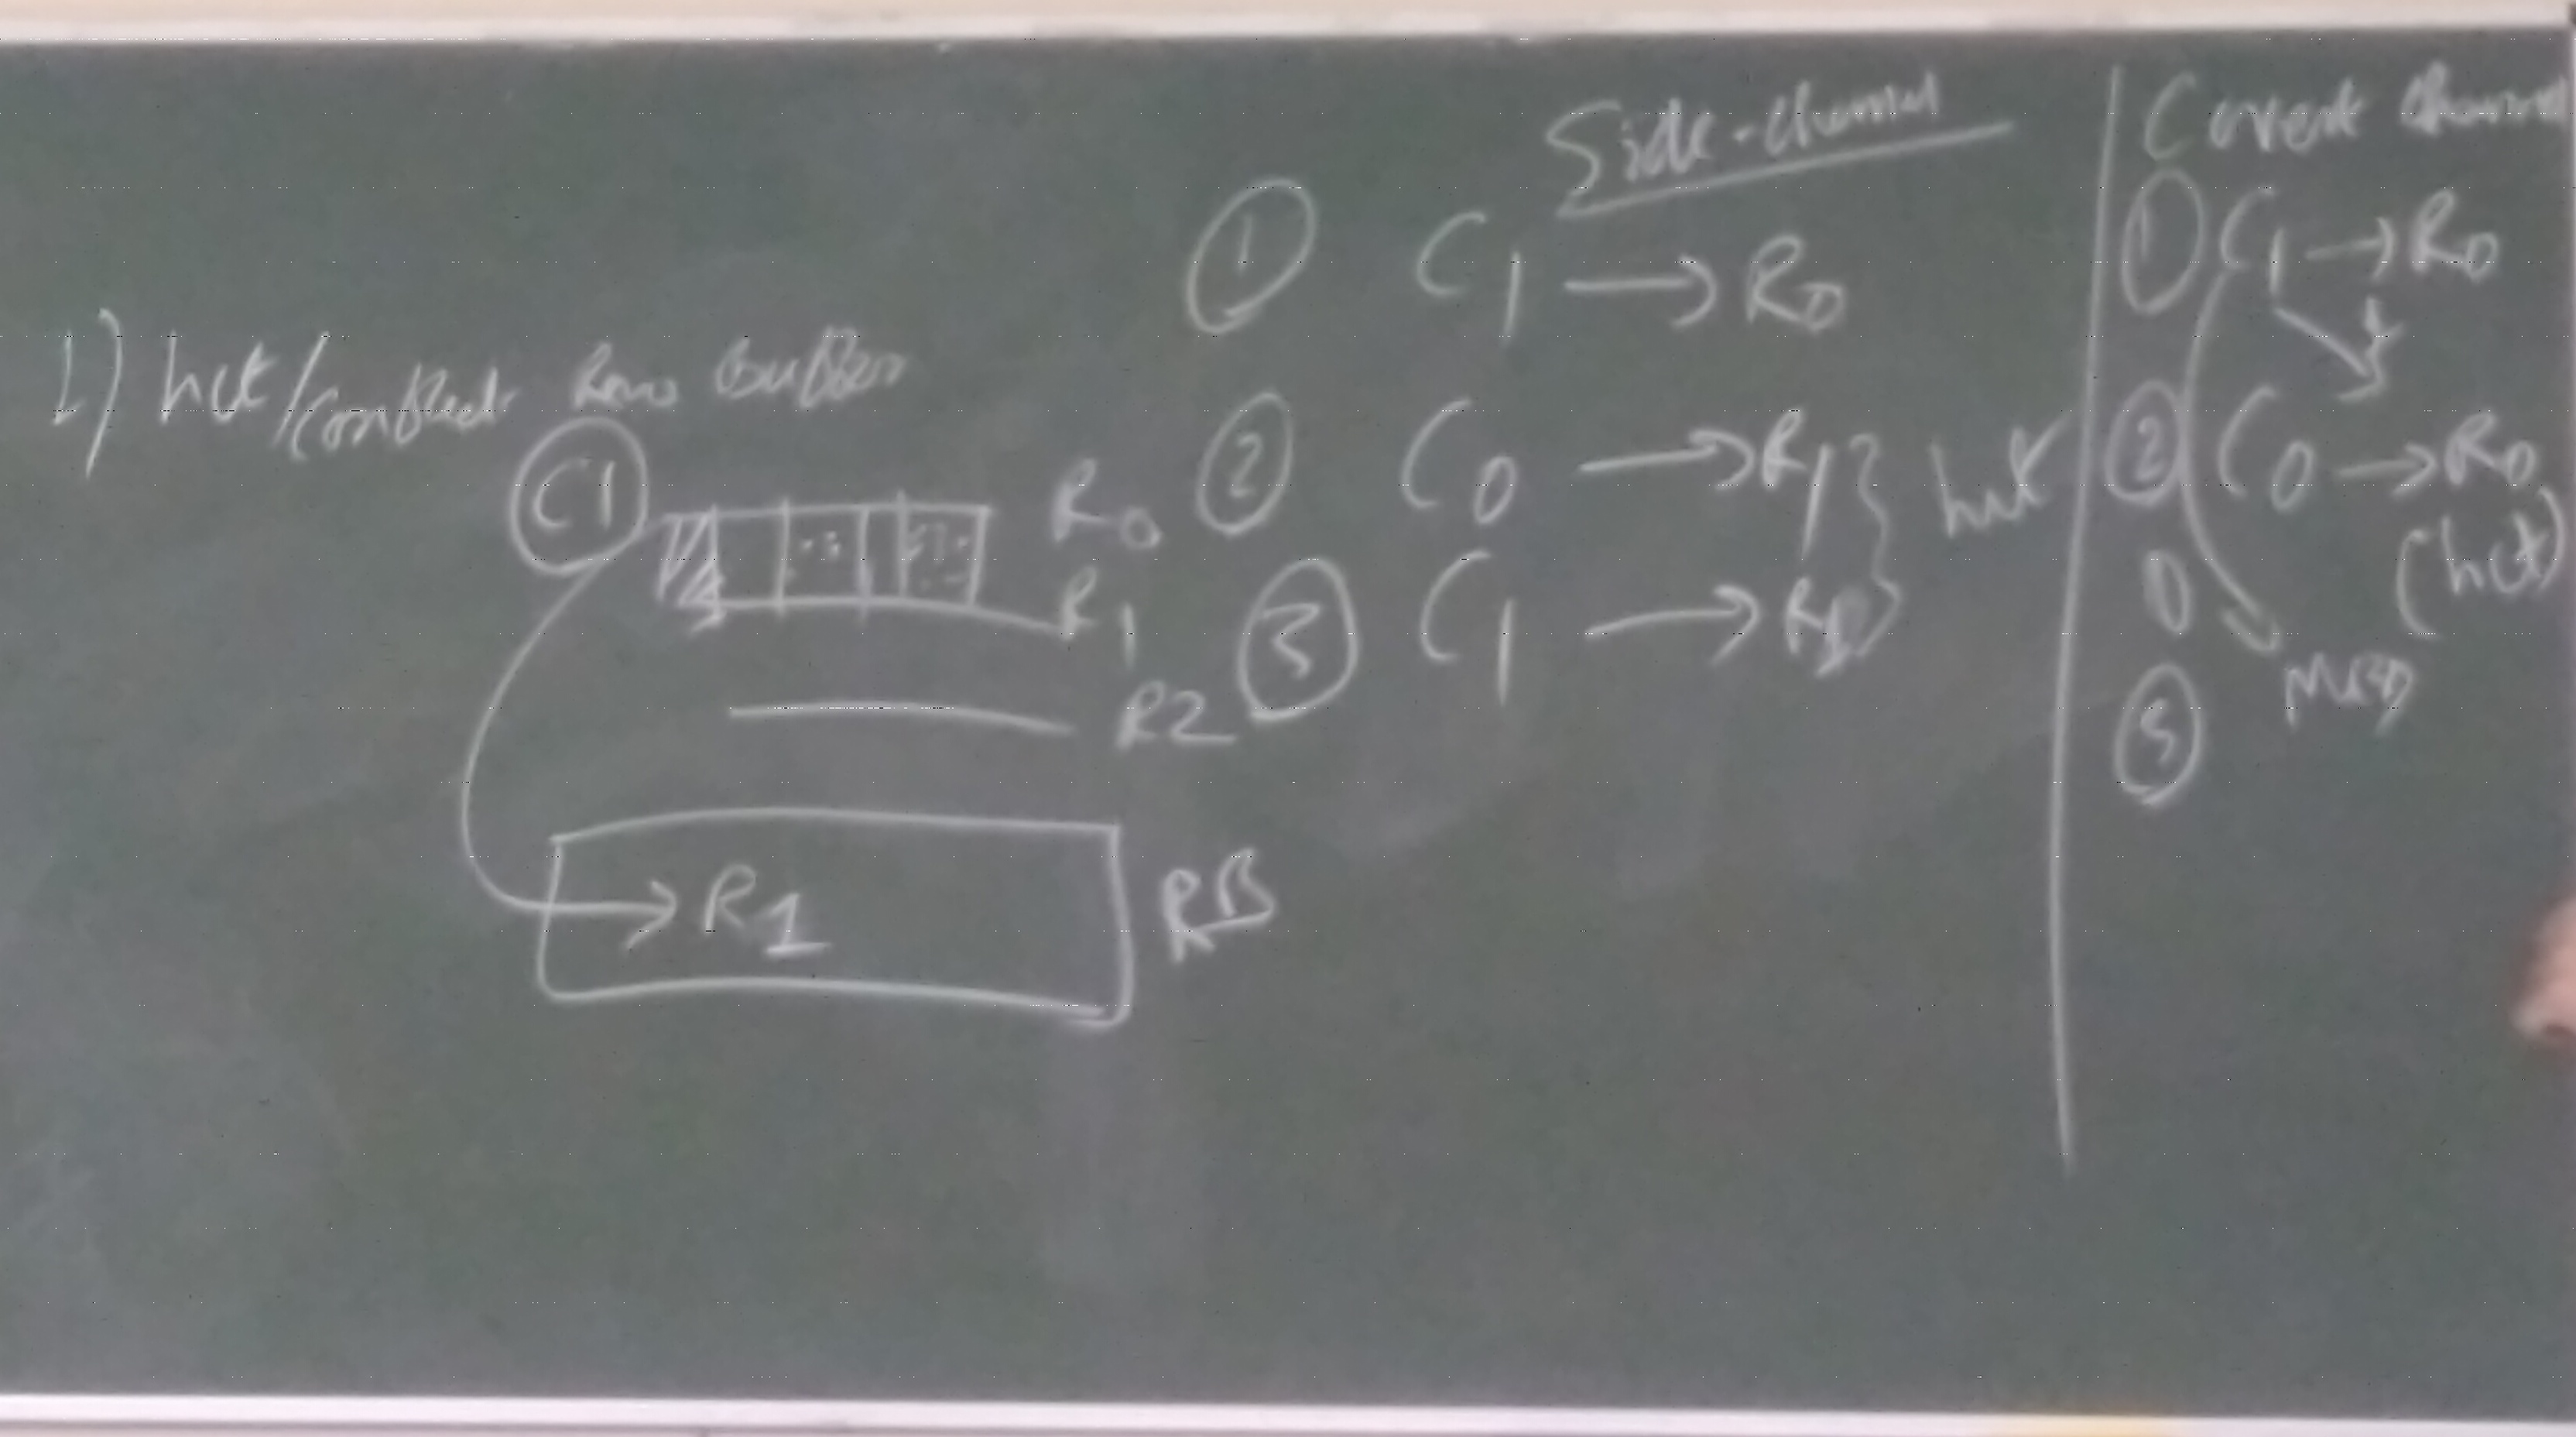 1) hit/conflict Row Buffer
C1
R0
R1
R2
R1
RB
Side-channel
① C1 → R0
② C0 → R1 } hit
③ C1 → R1
Covert channel
① C1 → R0
② C0 → R0
(hit)
③